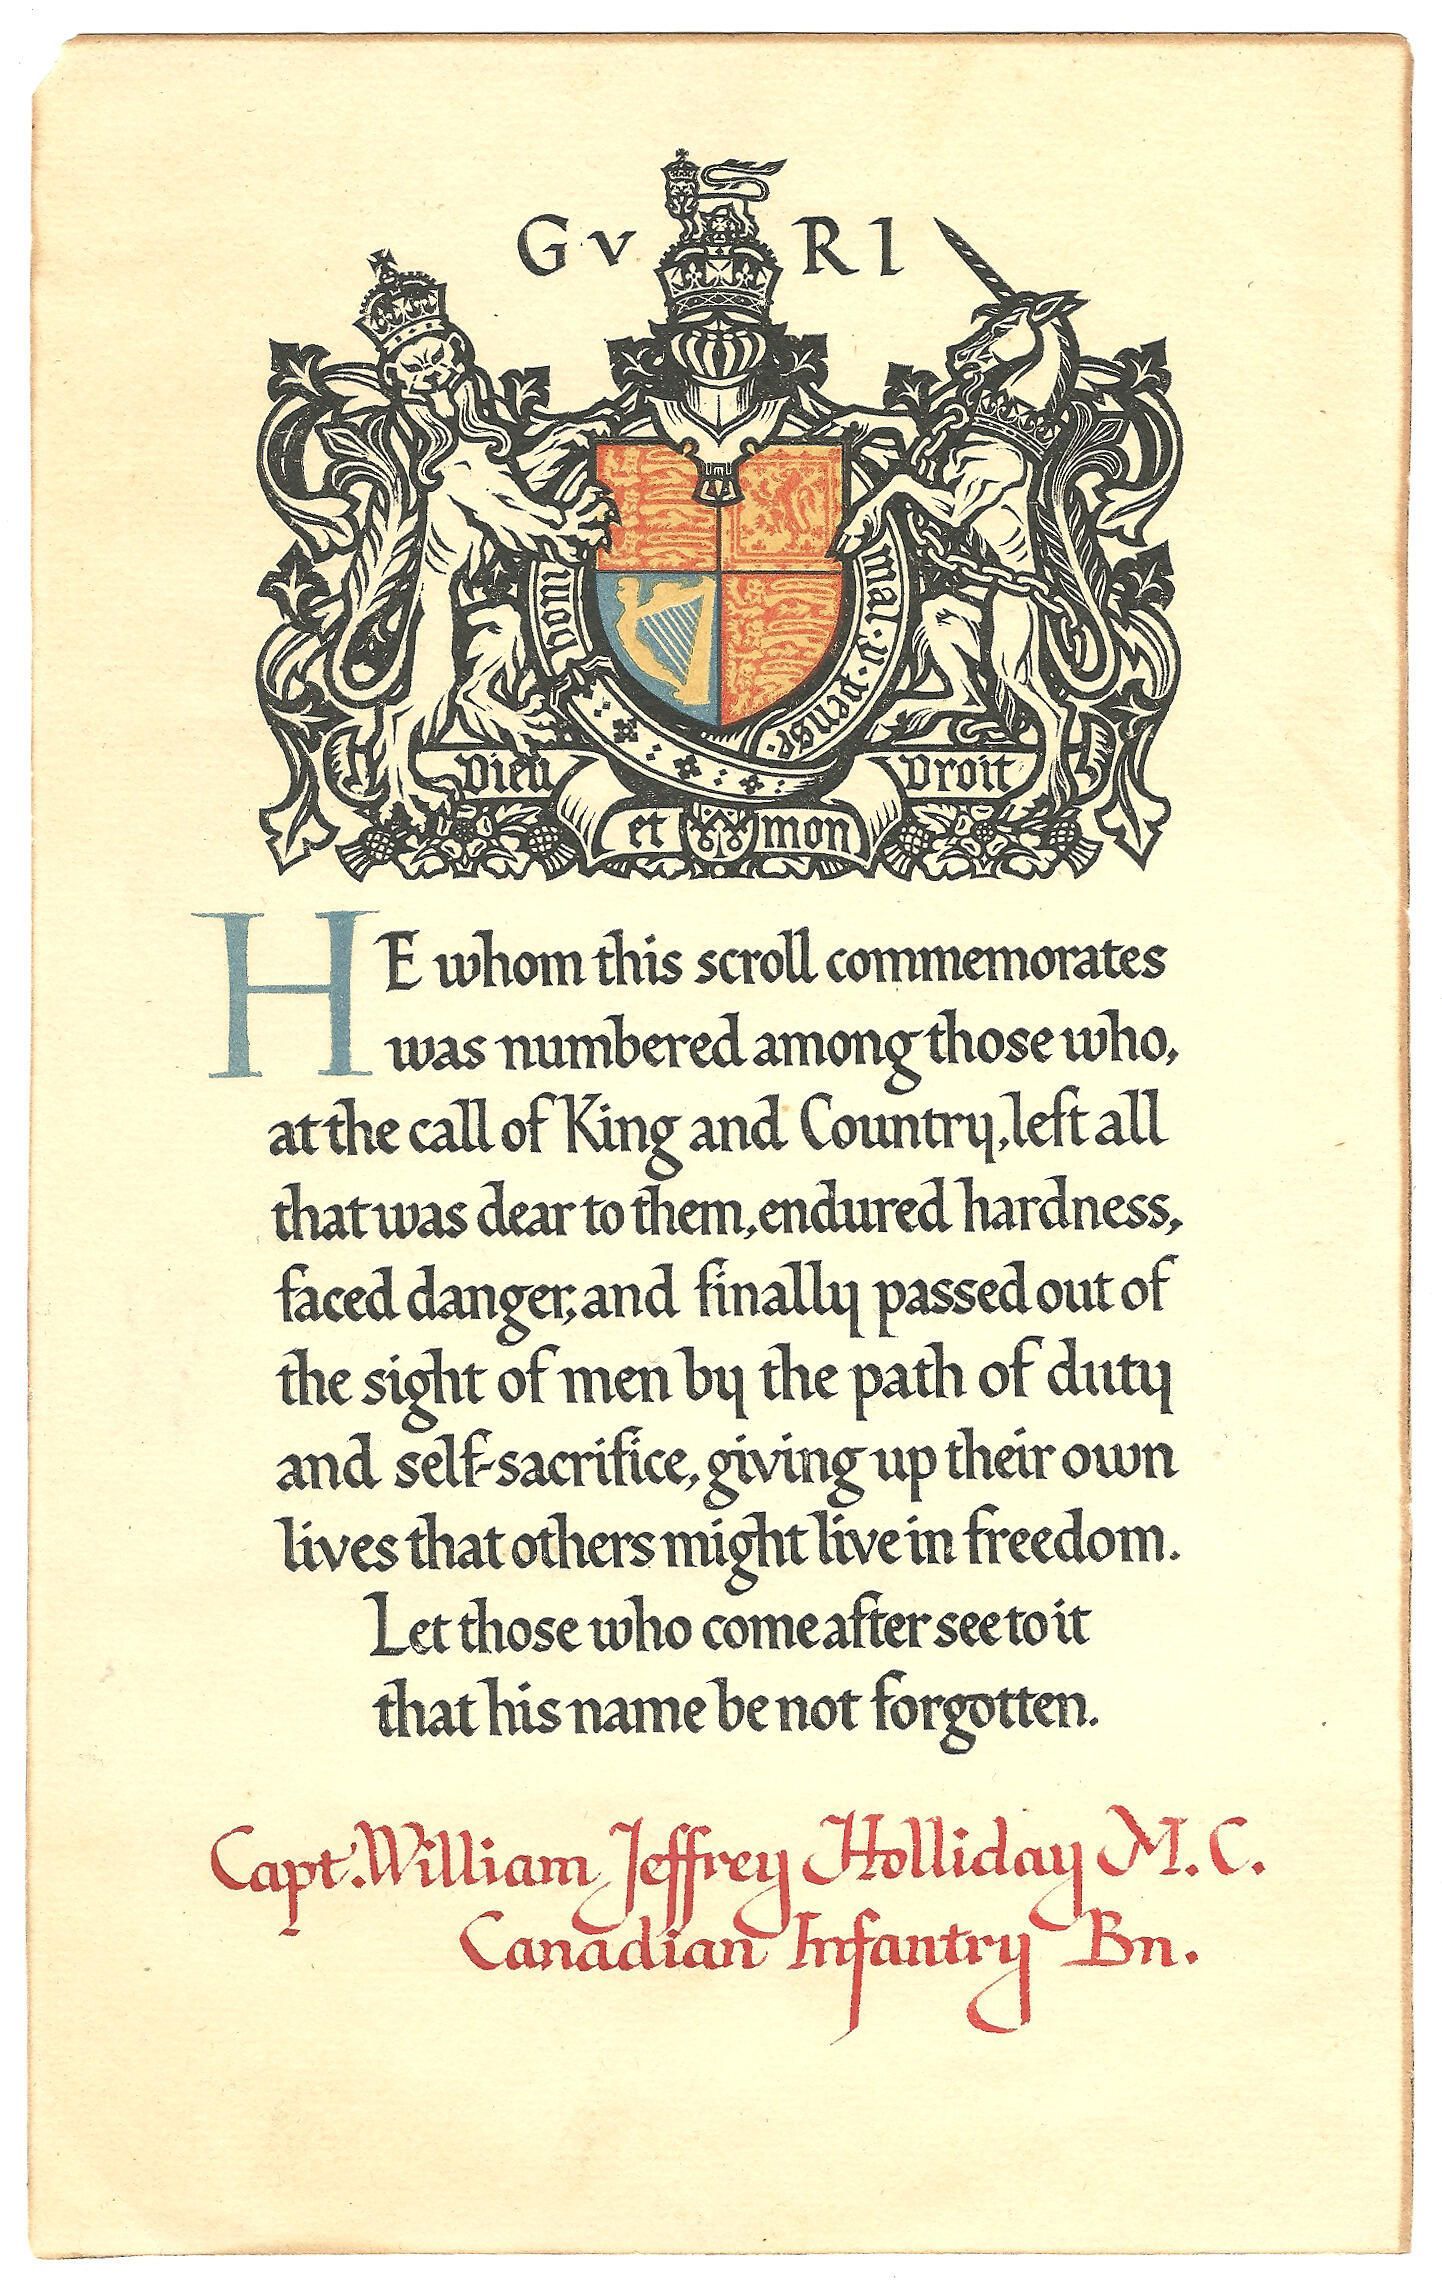 G V R I
honi
mal · y · pense ·
Dieu
Droit
et mon
HE whom this scroll commemorates
was numbered among those who,
at the call of King and Country, left all
that was dear to them, endured hardness,
faced danger, and finally passed out of
the sight of men by the path of duty
and self-sacrifice, giving up their own
lives that others might live in freedom.
Let those who come after see to it
that his name be not forgotten.
Capt. William Jeffrey Holliday M.C.
Canadian Infantry Bn.